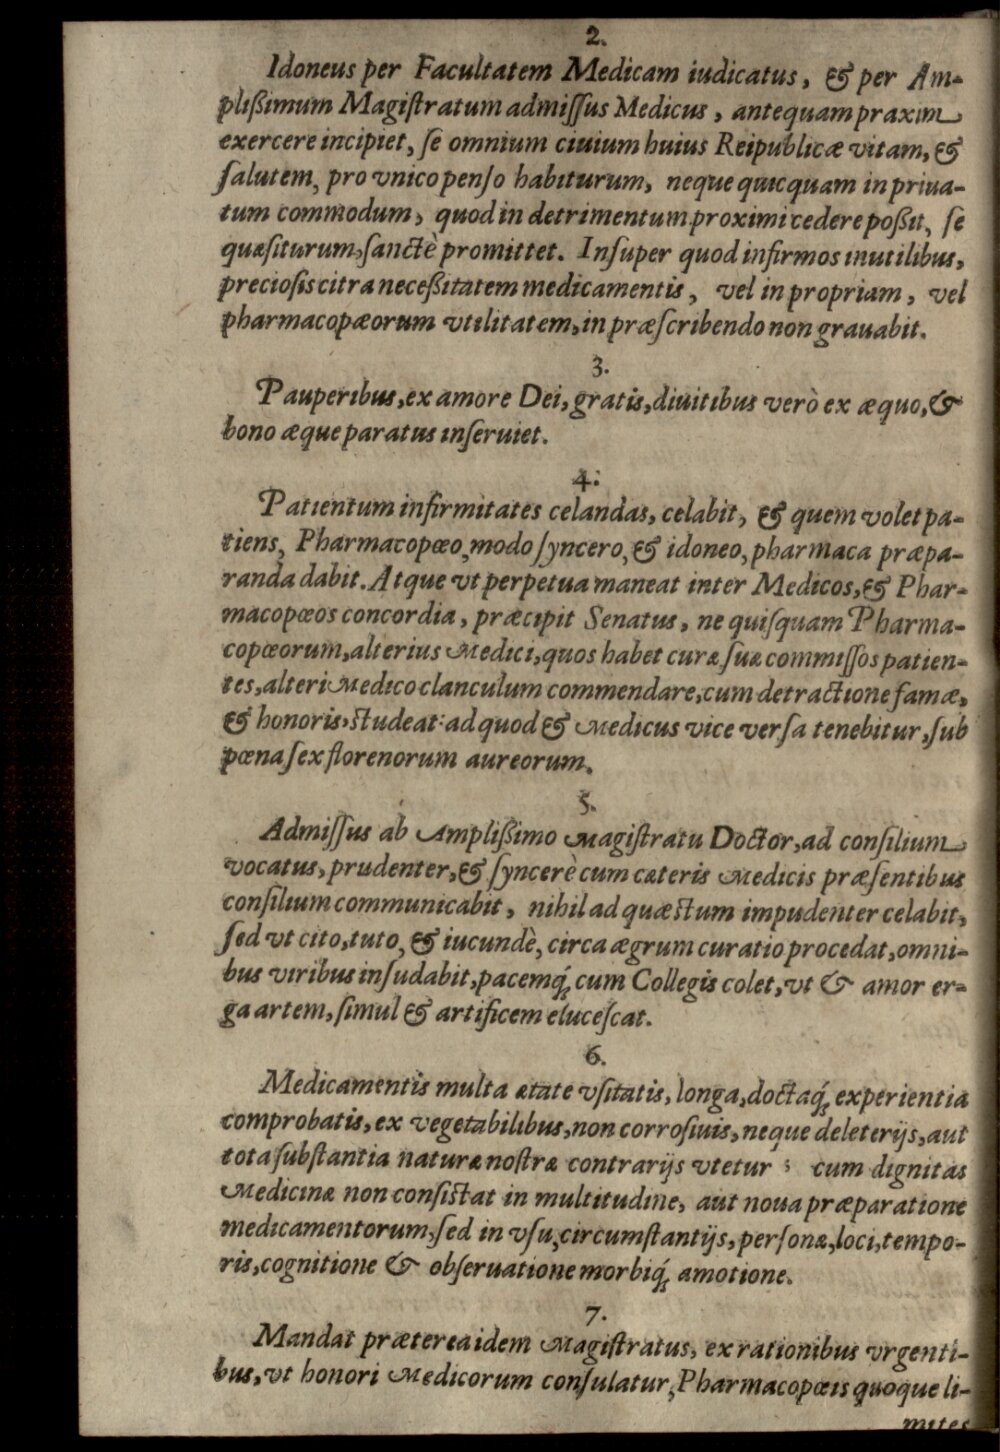 2.
Idoneus per Facultatem Medicam iudicatus, & per Am-
plißimum Magiſtratum admiſſus Medicus, antequam praxim
exercere incipiet, ſe omnium ciuium huius Reipublicæ vitam, &
ſalutem, pro vnico penſo habiturum, neque quicquam in priua-
tum commodum, quod in detrimentum proximi cedere poßit, ſe
quæſiturum, ſanctè promittet. Inſuper quod infirmos inutilibus,
preciosis citra neceßitatem medicamentis, vel in propriam, vel
pharmacopæorum vtilitatem, in præſcribendo non grauabit.
3.
Pauperibus, ex amore Dei, gratis, diuitibus verò ex æquo, &
bono æque paratus inſeruiet.
4.
Patientum infirmitates celandas, celabit, & quem volet pa-
tiens, Pharmacopœo, modo ſyncero, & idoneo, pharmaca præpa-
randa dabit. Atque vt perpetua maneat inter Medicos, & Phar-
macopœos concordia, præcipit Senatus, ne quiſquam Pharma-
copœorum, alterius Medici, quos habet curæ ſuæ commiſſos patien-
tes, alteri Medico clanculum commendare, cum detractione famæ,
& honoris, ſtudeat: ad quod & Medicus vice verſa tenebitur, ſub
pœna ſex florenorum aureorum.
5.
Admiſſus ab Amplißimo Magiſtratu Doctor, ad conſilium
vocatus, prudenter, & ſyncerè cum cæteris Medicis præſentibus
conſilium communicabit, nihil ad quæſtum impudenter celabit,
ſed vt cito, tuto, & iucundè, circa ægrum curatio procedat, omni-
bus viribus inſudabit, pacemq́; cum Collegis colet, vt & amor er-
ga artem, ſimul & artificem eluceſcat.
6.
Medicamentis multa ætate vſitatis, longa, doctaq́; experientia
comprobatis, ex vegetabilibus, non corroſiuis, neque deleterijs, aut
tota ſubſtantia naturæ noſtræ contrarijs vtetur; cum dignitas
Medicinæ non conſiſtat in multitudine, aut noua præparatione
medicamentorum, ſed in vſu, circumſtantijs, perſonæ, loci, tempo-
ris, cognitione & obſeruatione morbiq́; amotione.
7.
Mandat præterea idem Magiſtratus, ex rationibus vrgenti-
bus, vt honori Medicorum conſulatur, Pharmacopœis quoque li-
mites